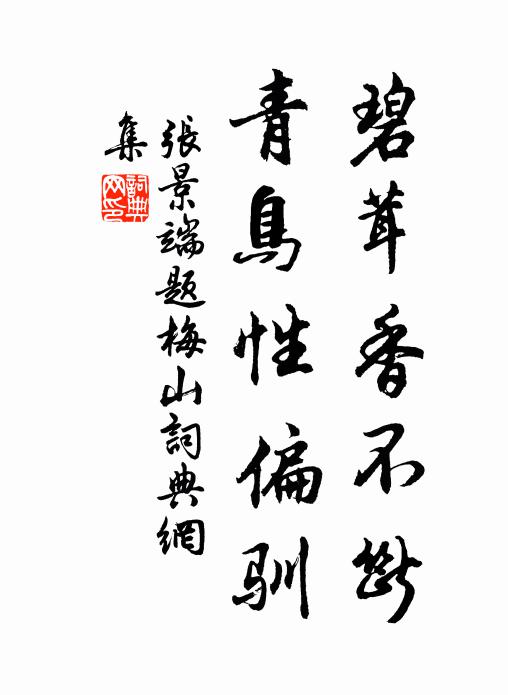 碧茸香不斷
青鳥性偏馴
張景端題梅山詞典網
集
詞典
网印